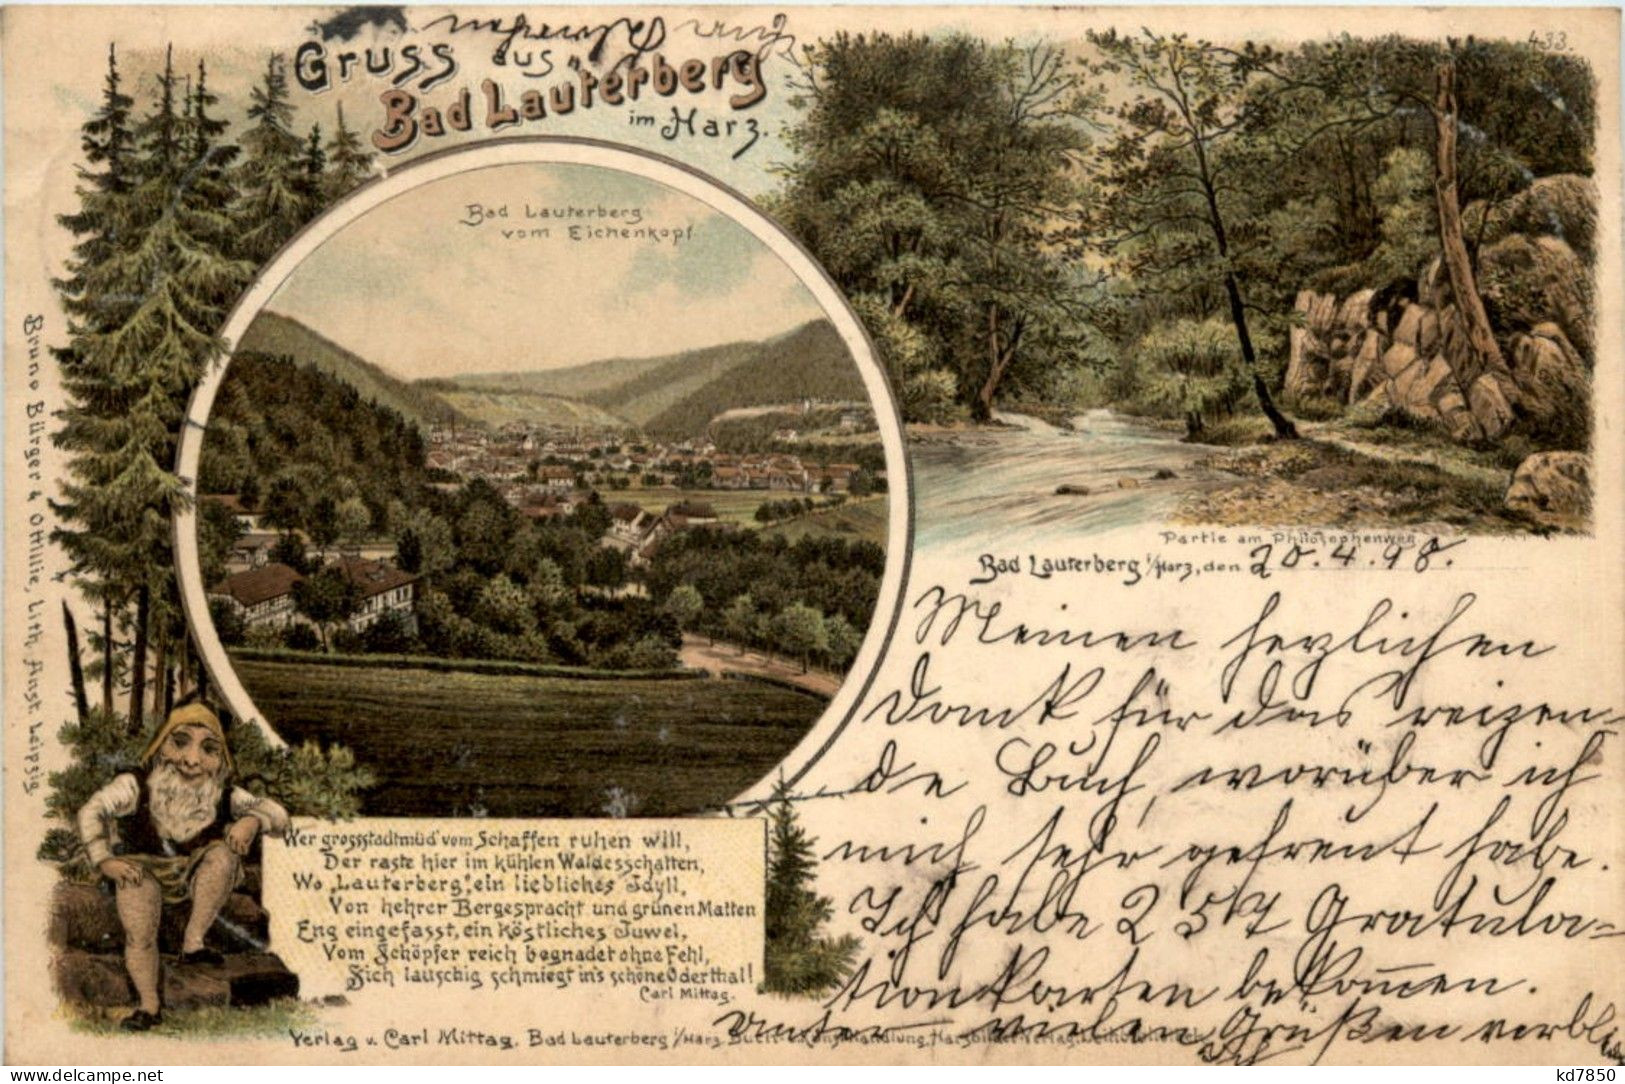 Gruss aus
Bad Lauterberg
im Harz.
433.
Bad Lauterberg
vom Eichenkopf.
Partie am Philosophenweg.
Bad Lauterberg i/Harz, den 20.4.98.
Meinen herzlichen
Dank für das reizen-
de Buch, worüber ich
mich sehr gefreut habe.
Ich habe 257 Gratula=
tionskarten bekom̄en.
Unter vielen Grüßen verbl
Ich
Wer grossstadtmüd' vom Schaffen ruhen will,
Der raste hier im kühlen Waldesschatten,
Wo „Lauterberg", ein liebliches Idyll,
Von hehrer Bergespracht und grünen Matten
Eng eingefasst, ein köstliches Juwel,
Vom Schöpfer reich begnadet ohne Fehl,
Sich lauschig schmiegt in's schöne Oderthal!
Carl Mittag.
Verlag v. Carl Mittag. Bad Lauterberg i/Harz. Buch- u. Kunsthandlung, Harzbilder-Verlag,
Bruno Bürger & Ottilie, Lith. Anst. Leipzig.
kd7850
delcampe.net